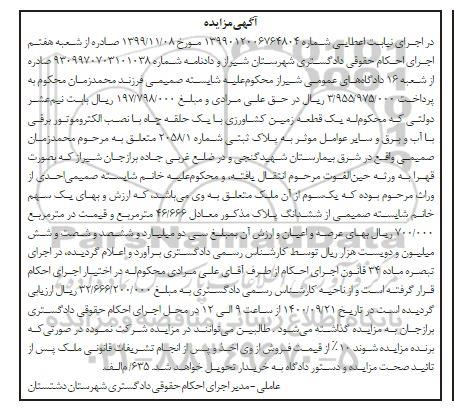 آگهی مزایده
در اجرای نیابت اعطایی شماره ۱۳۹۹۰۱۲۰۰۶۷۶۴۸۰۴ مورخ ۱۳۹۹/۱۱/۰۸ صادره از شعبه هفتم
اجرای احکام حقوقی دادگستری شهرستان شیراز و دادنامه شماره ۹۳۰۹۹۷۰۷۰۳۱۰۱۰۳۸ صادره
از شعبه ۱۶ دادگاه‌های عمومی شیراز محکوم‌علیه شایسته صمیمی فرزند محمدزمان محکوم به
پرداخت ۳/۹۵۵/۹۷۵/۰۰۰ ریال در حق علی مرادی و مبلغ ۱۹۷/۷۹۸/۰۰۰ ریال بابت نیم‌عشر
دولتی که محکوم‌له یک قطعه زمین کشاورزی با یک حلقه چاه با نصب الکتروموتور برقی
با آب و برق و سایر عوامل موثر به پلاک ثبتی شماره ۲۰۵۸/۱ متعلق به مرحوم محمدزمان
صمیمی واقع در شرق بیمارستان شهید گنجی و در ضلع غربی جاده برازجان شیراز که بصورت
قهرا به ورثه حین‌الفوت مرحوم انتقال یافته، و محکوم‌علیه خانم شایسته صمیمی‌احدی از
وراث مرحوم بوده که یک‌سوم از آن ملک متعلق به وی می‌باشد، که ارزش و بهای یک سهم
خانم شایسته صمیمی از ششدانگ پلاک مذکور معادل ۴۶/۶۶۶ مترمربع و قیمت در مترمربع
۷۰۰/۰۰۰ ریال بهای عرصه و اعیان و ارزش آن بمبلغ سی دو میلیارد و ششصد و شصت و شش
میلیون و دویست هزار ریال توسط کارشناس رسمی دادگستری برآورد و اعلام گردیده، در اجرای
تبصره ماده ۳۴ قانون اجرای احکام از طرف آقای علی مرادی محکوم‌له در اختیار اجرای احکام
قرار گرفته است و از ناحیه کارشناس رسمی دادگستری به مبلغ ۳۲/۶۶۶/۲۰۰/۰۰۰ ریال ارزیابی
گردیده است در تاریخ ۱۴۰۰/۰۹/۲۱ از ساعت ۹ الی ۱۲ در محل اجرای احکام حقوقی دادگستری
برازجان به مزایده گذاشته می‌شود. طالبین می‌توانند در مزایده شرکت نموده در صورتی‌که
برنده مزایده شوند ۱۰٪ از قیمت فروش از وی اخذ و پس از انجام تشریفات قانونی ملک پس از
تائید صحت مزایده و دستور دادگاه به خریدار تحویل خواهد شد. ۶۳۵/م‌الف.
عاملی - مدیر اجرای احکام حقوقی دادگستری شهرستان دشتستان